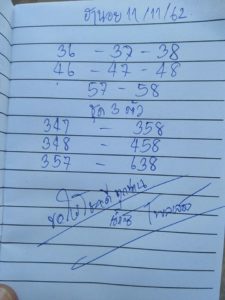 ฮานอย 11/11/62
36 - 37 - 38
46 - 47 - 48
57 - 58
ชุด 3 ตัว
347 - 358
348 - 458
357 - 638
ขอให้โชคดีทุกท่าน